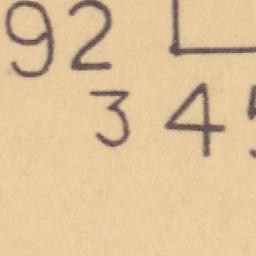 92
34